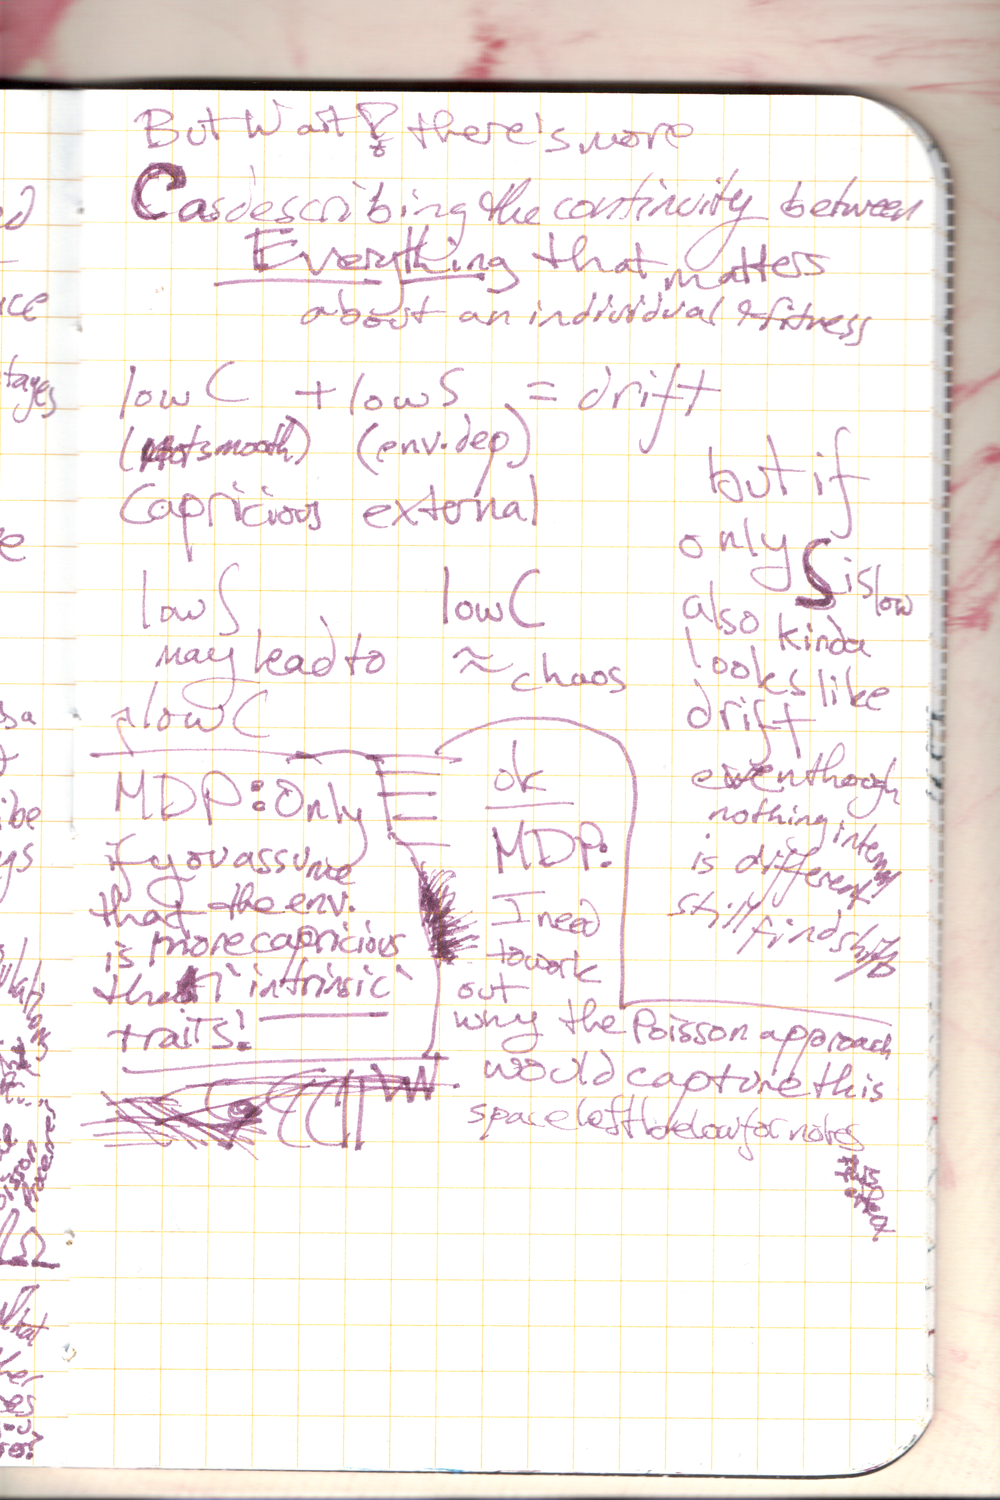 But Wait! there's more
C as describing the continuity between
Everything that matters
about an individual & fitness
low C + low S = drift
(not smooth) (env. dep)
Capricious external
low S
may lead to
low C
low C
≈ chaos
but if
only S is low
also kinda
looks like
drift
even though
nothing intern
is different
still find shifts
MDP: Only
if you assume
that the env.
is more capricious
than 'intrinsic'
traits!
ok
MDP:
I need
to work
out
why the Poisson approach
would capture this
space left below for notes
this
effect
ice
tages
e
ibe
what